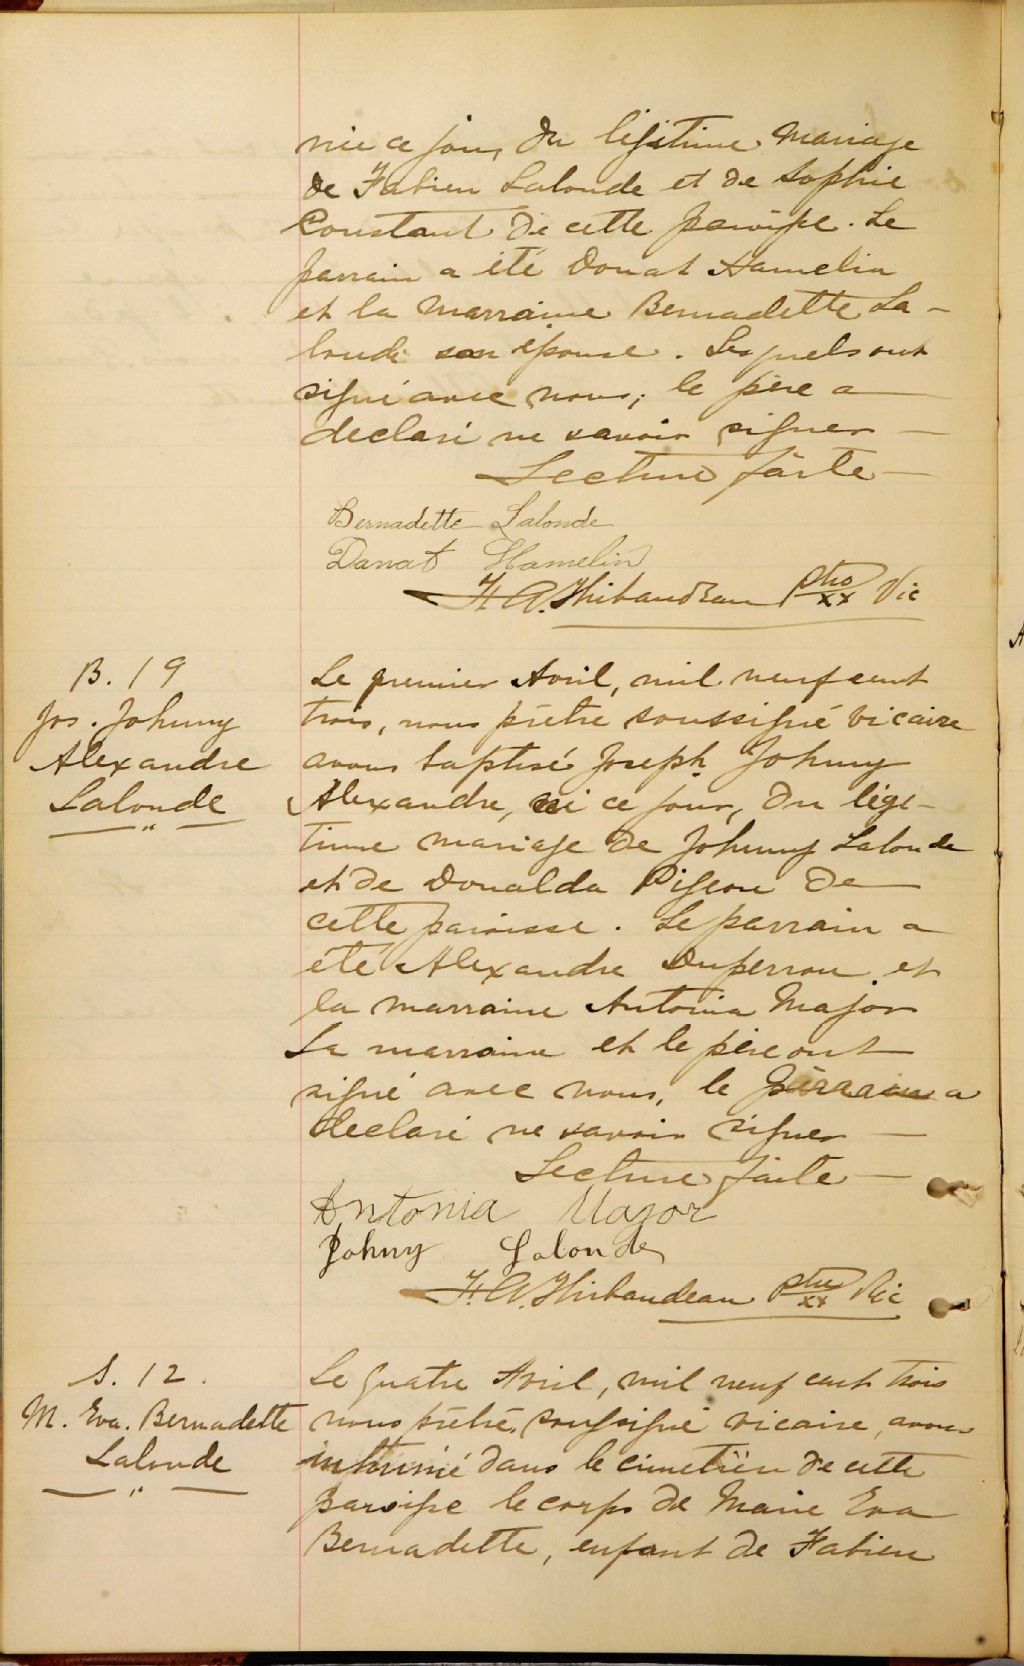 née ce jour, du légitime mariage
de Fabien Lalonde et de Sophie
Constant de cette paroisse. Le
parrain a été Donat Hamelin
et la marraine Bernadette La-
londe son épouse. Lesquels ont
signé avec nous; le père a
declaré ne savoir signer —
Lecture faite —
Bernadette Lalonde
Donat Hamelin
F. A. Thibaudeau ptre Vic
B. 19
Jos. Johnny
Alexandre
Lalonde
Le premier Avril, mil neuf cent
trois, nous prêtre soussigné vicaire
avons baptisé Joseph Johnny
Alexandre, né ce jour, du légi-
time mariage de Johnny Lalonde
et de Donalda Pigeon de
cette paroisse. Le parrain a
été Alexandre Duperron et
la marraine Antonia Major
La marraine et le père ont
signé avec nous, le parrain a
declaré ne savoir signer —
Lecture faite —
Antonia Major
Johny Lalonde
F. A. Thibaudeau ptre Vic
S. 12.
M. Eva. Bernadette
Lalonde
Le quatre Avril, mil neuf cent trois
nous prêtre, soussigné vicaire, avons
inhumé dans le cimetière de cette
paroisse le corps de Marie Eva
Bernadette, enfant de Fabien